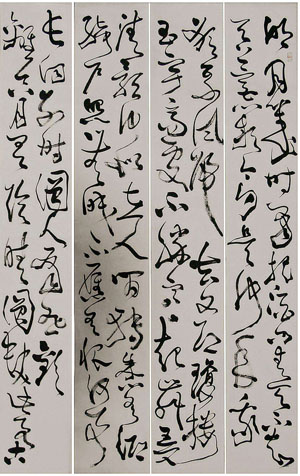 明月幾時有把酒問青天不知
天上宮闕今夕是何年我
欲乘風歸去又恐瓊樓
玉宇高處不勝寒起舞弄
清影何似在人間轉朱閣低
綺戶照無眠不應有恨何事
長向別時圓人有悲歡
離合月有陰晴圓缺此事古